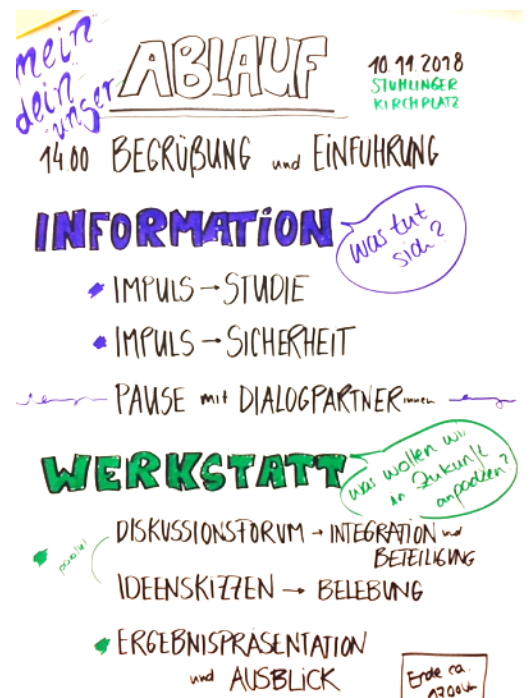 mein
dein
unser
ABLAUF
10.11.2018
STÜHLINGER
KIRCHPLATZ
14.00 BEGRÜßUNG und EINFÜHRUNG
INFORMATION
was tut
sich?
IMPULS → STUDIE
IMPULS → SICHERHEIT
PAUSE mit DIALOGPARTNERinnen
WERKSTATT
was wollen wir
in Zukunft
anpacken?
parallel
DISKUSSIONSFORUM → INTEGRATION und
BETEILIGUNG
IDEENSKIZZEN → BELEBUNG
ERGEBNISPRÄSENTATION
und AUSBLICK
Ende ca.
17.00 Uhr